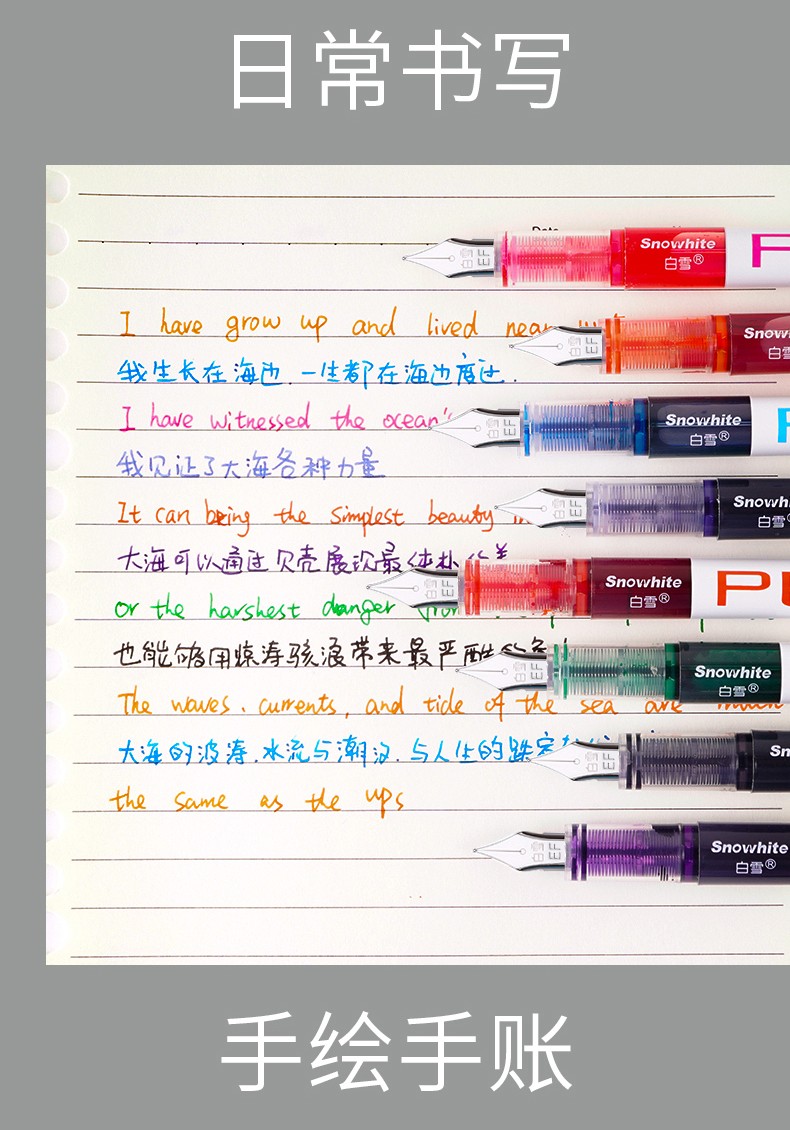 日常书写
Date
EF
Snowhite
白雪®
I have grow up and lived near
EF
Snow
白雪
我生长在海边.一生都在海边度过.
I have witnessed the ocean's
EF
Snowhite
白雪®
我见证了大海各种力量
EF
Snowh
白雪®
It can being the simplest beauty
大海可以通过贝壳展现最纯朴的美
EF
Snowhite
白雪®
PU
or the harshest danger
也能够用惊涛骇浪带来最严酷
EF
Snowhite
白雪®
The waves. currents, and tide of the sea are much
大海的波涛.水流与潮汐.与人生的跌宕
EF
Sn
白
the same as the ups
EF
Snowhite
白雪®
手绘手账